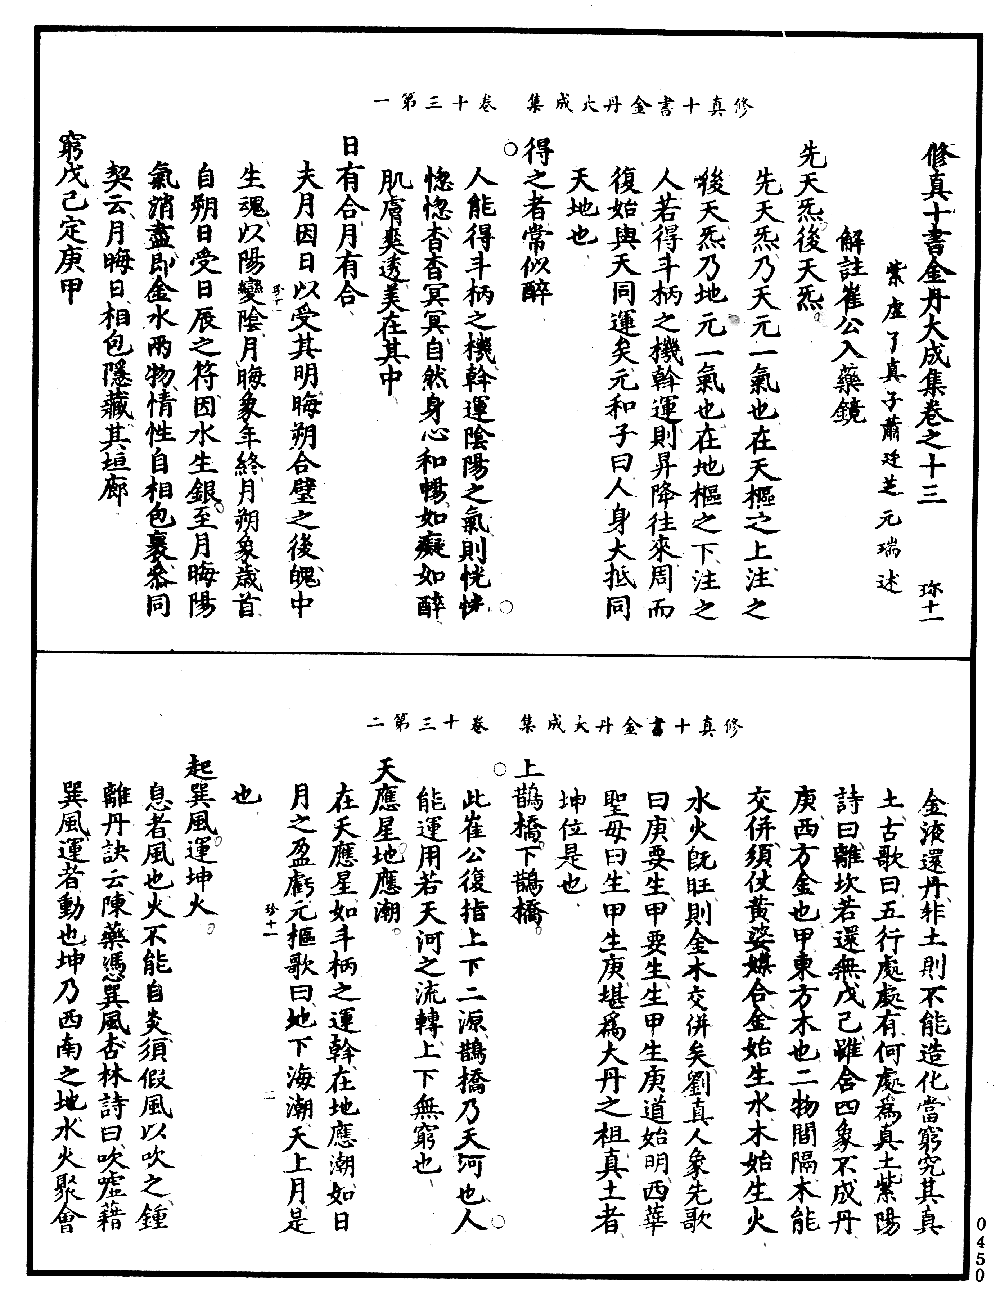 修真十書金丹大成集　卷十三第一
修真十書金丹大成集卷之十三　珎十一
紫虛了真子蕭廷芝元瑞述
解註崔公入藥鏡
先天炁後天炁
先天炁乃天元一氣也在天樞之上注之
後天炁乃地元一氣也在地樞之下注之
人若得斗柄之機斡運則昇降往來周而
復始與天同運矣元和子曰人身大抵同
天地也
得之者常似醉
人能得斗柄之機斡運陰陽之氣則恍恍
惚惚杳杳冥冥自然身心和暢如癡如醉
肌膚爽透美在其中
日有合月有合
夫月因日以受其明晦朔合璧之後魄中
生魂以陽變陰月晦象年終月朔象歲首
自朔日受日辰之符因水生銀至月晦陽
氣消盡即金水兩物情性自相包裹叅同
契云月晦日相包隱藏其垣廓
窮戊己定庚甲
修真十書金丹大成集　卷十三第二
金液還丹非土則不能造化當窮究其真
土古歌曰五行處處有何處爲真土紫陽
詩曰離坎若還無戊己雖含四象不成丹
庚西方金也甲東方木也二物間隔不能
交併須仗黃婆媒合金始生水木始生火
水火旣旺則金木交併矣劉真人象先歌
曰庚要生甲要生生甲生庚道始明西華
聖母曰生甲生庚堪爲大丹之祖真土者
坤位是也
上鵲橋下鵲橋
此崔公復指上下二源鵲橋乃天河也人
能運用若天河之流轉上下無窮也
天應星地應潮
在天應星如斗柄之運斡在地應潮如日
月之盈虧元樞歌曰地下海潮天上月是
也
起巽風運坤火
息者風也火不能自炎須假風以吹之鍾
離丹訣云陳藥馮巽風杏林詩曰吹噓藉
巽風運者動也坤乃西南之地水火聚會
珎十一
0450